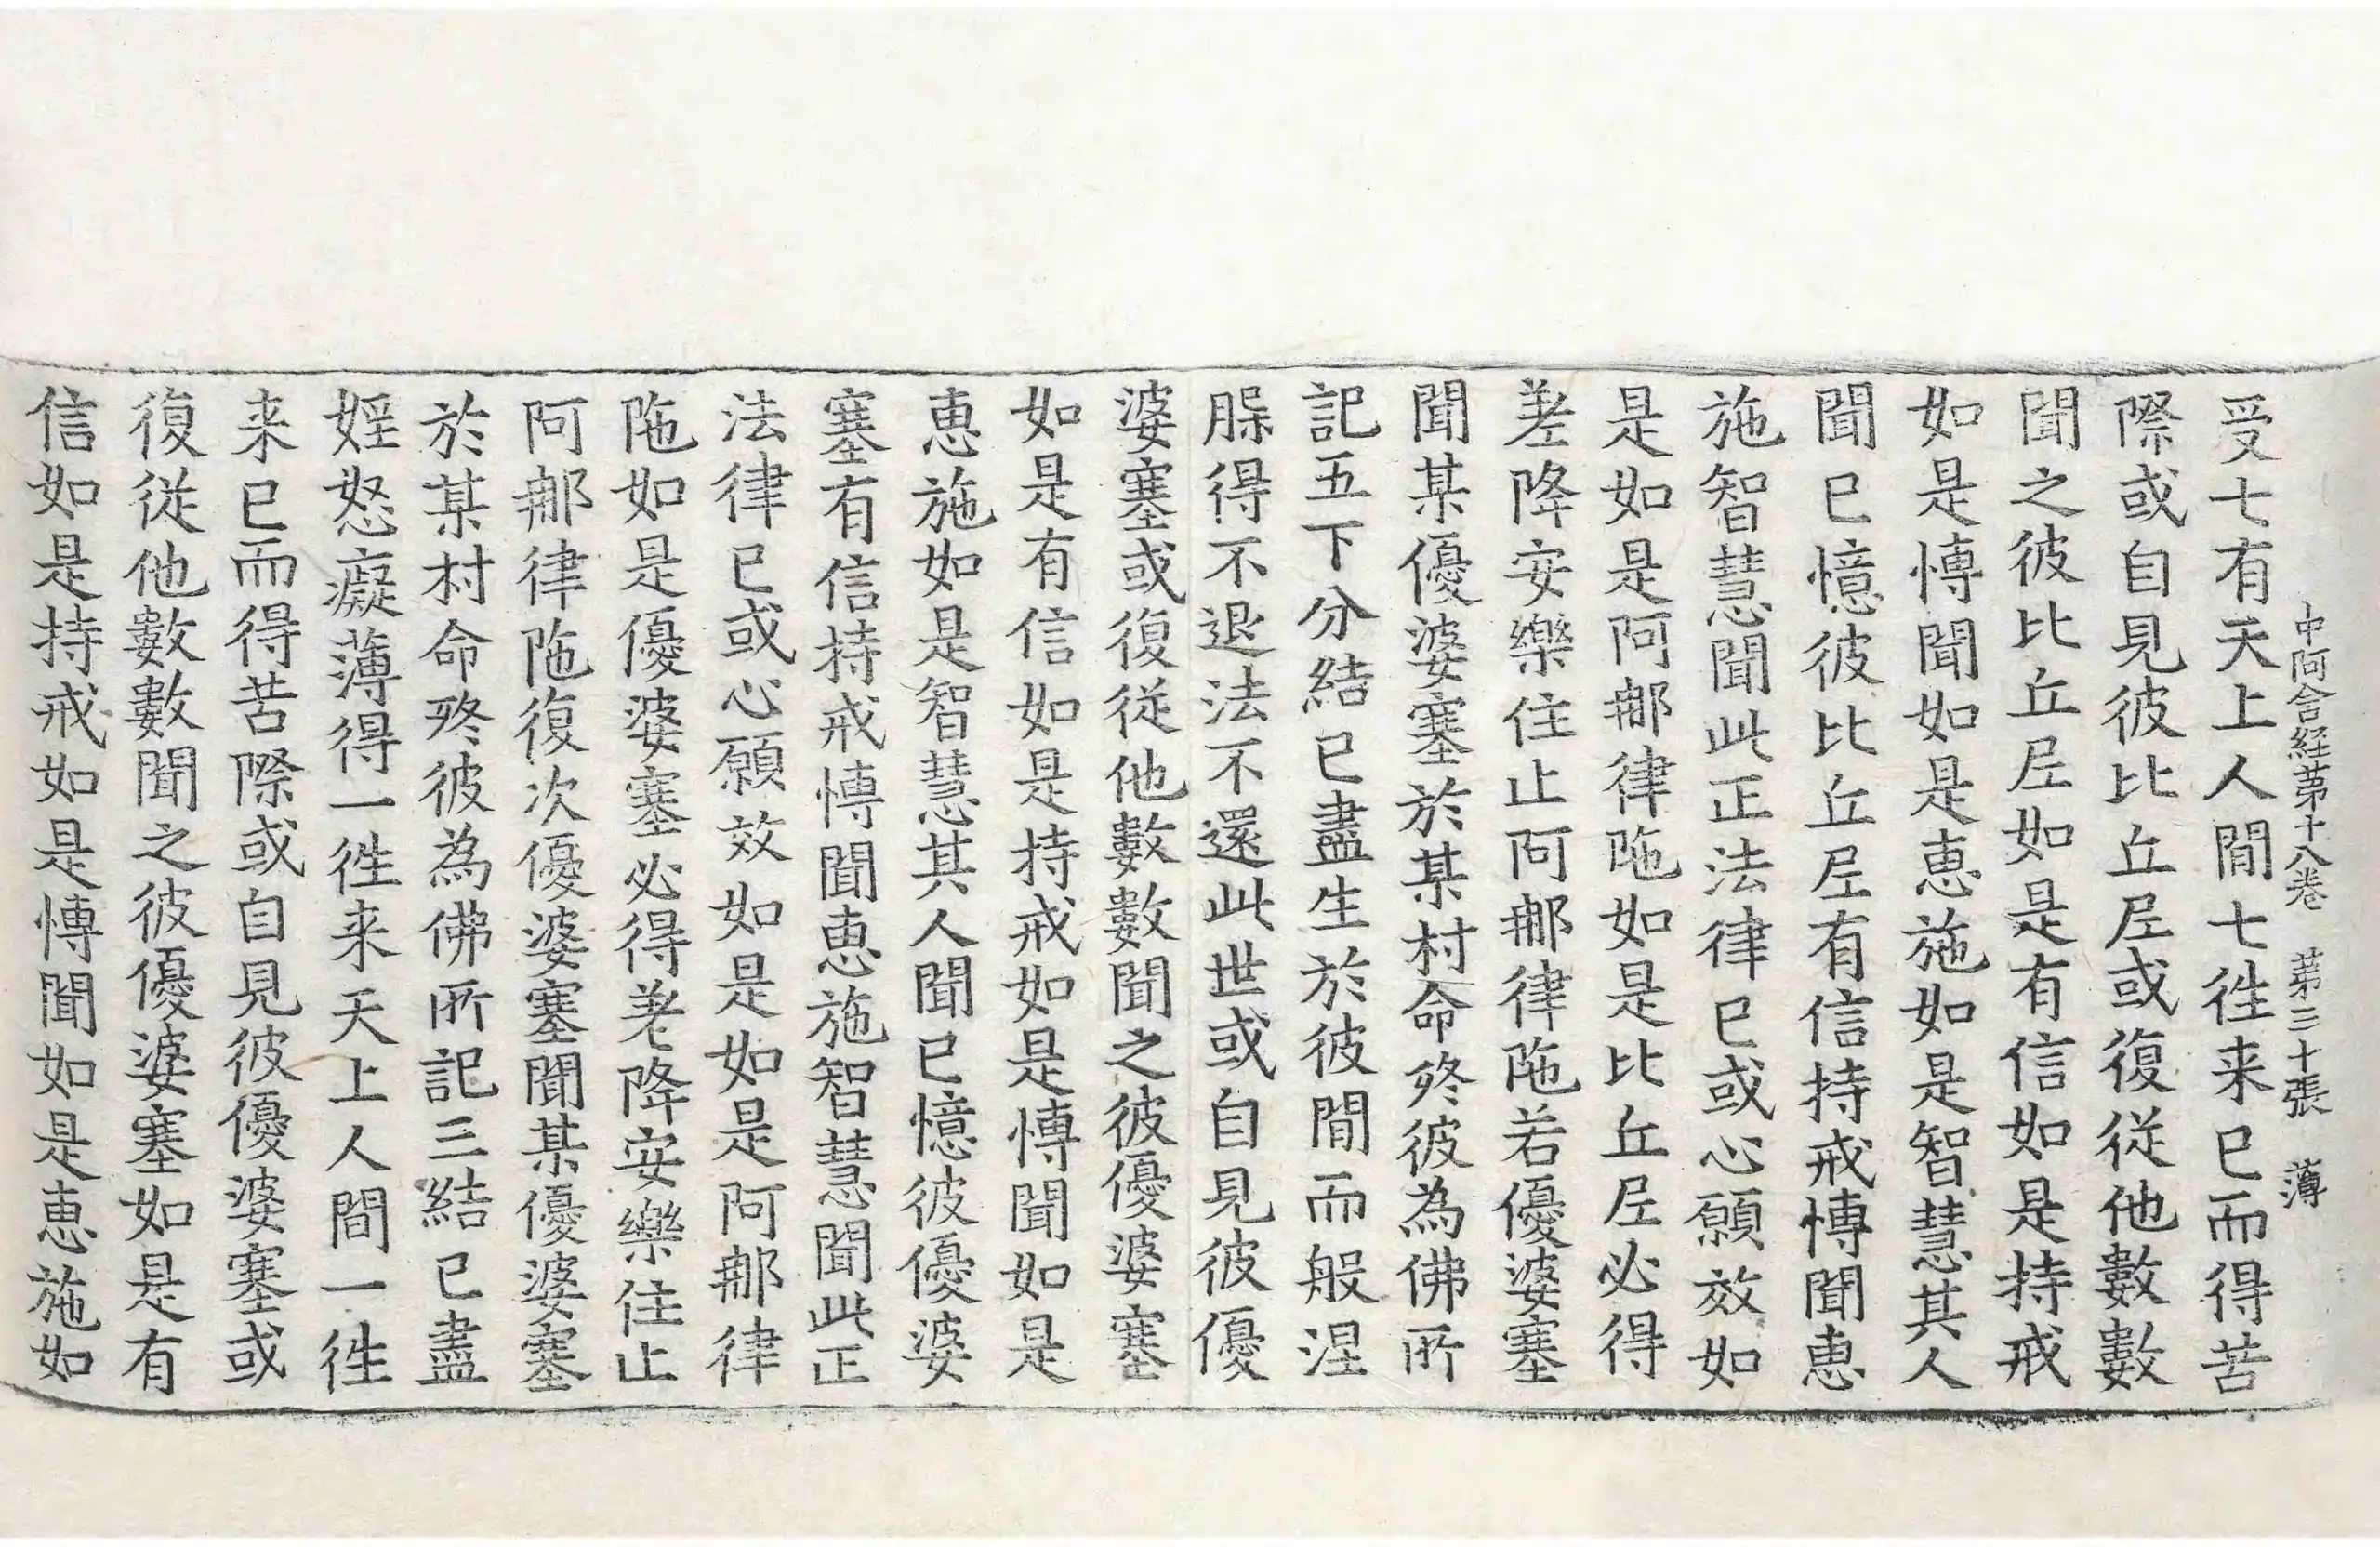 中阿含経苐十八卷 苐三十張 薄
受七有天上人間七徃来已而得苦
際或自見彼比丘尼或復從他數數
聞之彼比丘尼如是有信如是持戒
如是愽聞如是恵施如是智慧其人
聞已憶彼比丘尼有信持戒愽聞恵
施智慧聞此正法律已或心願效如
是如是阿那律陁如是比丘尼必得
差降安樂住止阿那律陁若優婆塞
聞某優婆塞於某村命終彼為佛所
記五下分結已盡生於彼間而般涅
槃得不退法不還此世或自見彼優
婆塞或復從他數數聞之彼優婆塞
如是有信如是持戒如是愽聞如是
恵施如是智慧其人聞已憶彼優婆
塞有信持戒愽聞恵施智慧聞此正
法律已或心願效如是如是阿那律
陁如是優婆塞必得差降安樂住止
阿那律陁復次優婆塞聞某優婆塞
於某村命終彼為佛所記三結已盡
婬怒癡薄得一徃来天上人間一徃
来已而得苦際或自見彼優婆塞或
復從他數數聞之彼優婆塞如是有
信如是持戒如是愽聞如是恵施如